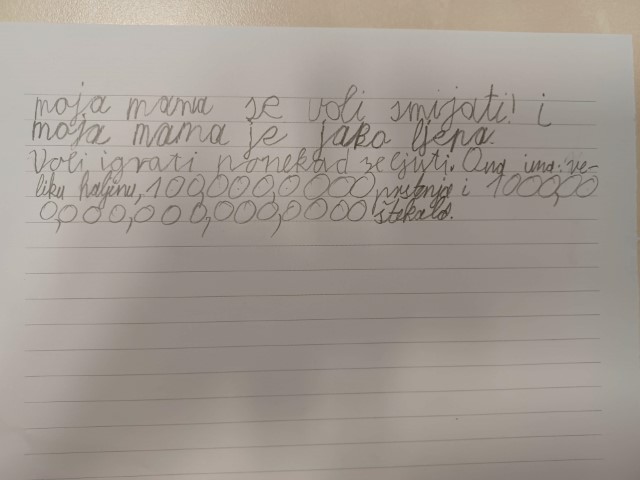 moja mama se voli smijati! i
moja mama je jako ljepa.
Voli igrati ponekad se ljuti. Ona ima: ve-
liku haljinu, 100,000,0000 prstenje i 1000,00
0,000,000,000,0000 štekala.